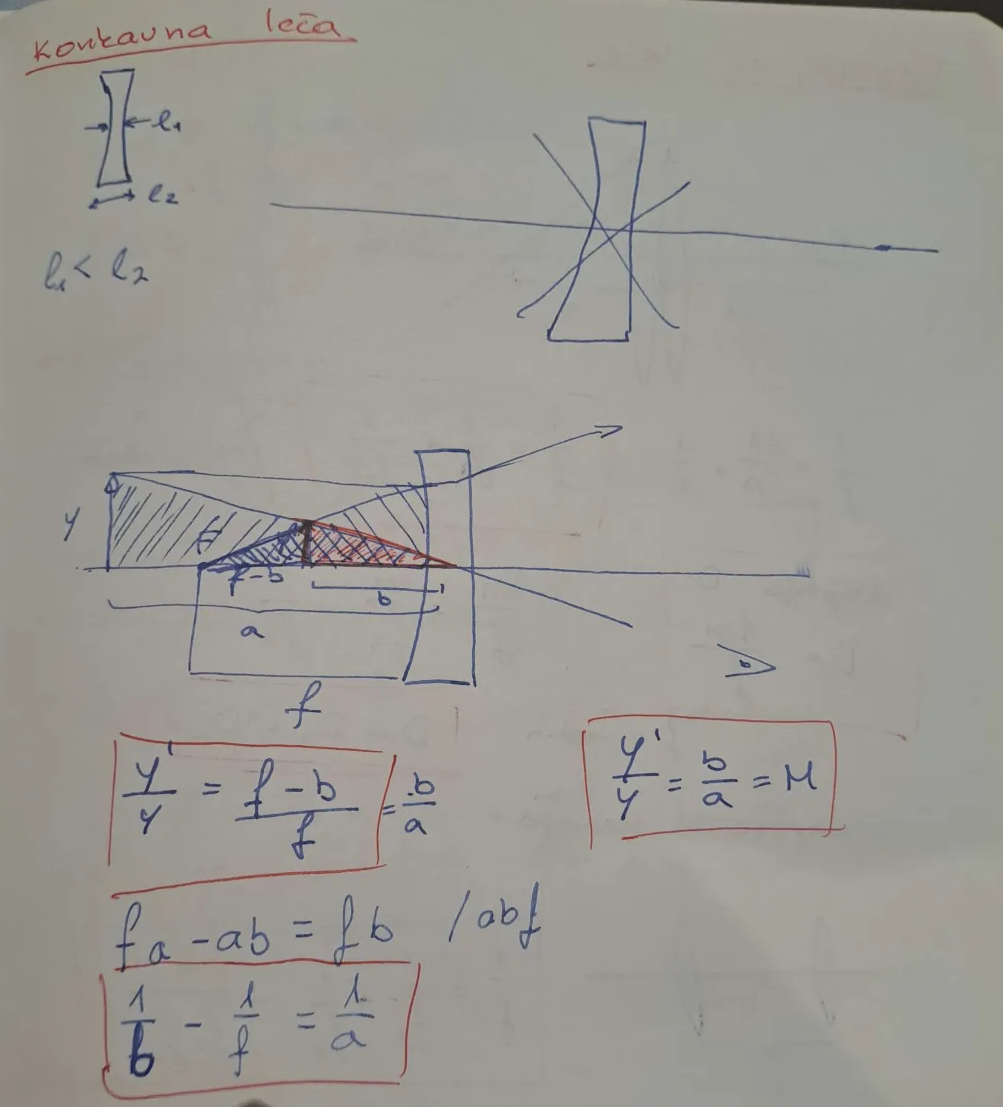 Konkavna leča
l₁
l₂
l₁ < l₂
y
F
f-b
b
a
f
y'/y = f-b/f = b/a
y'/y = b/a = M
fa - ab = fb /abf
1/b - 1/f = 1/a